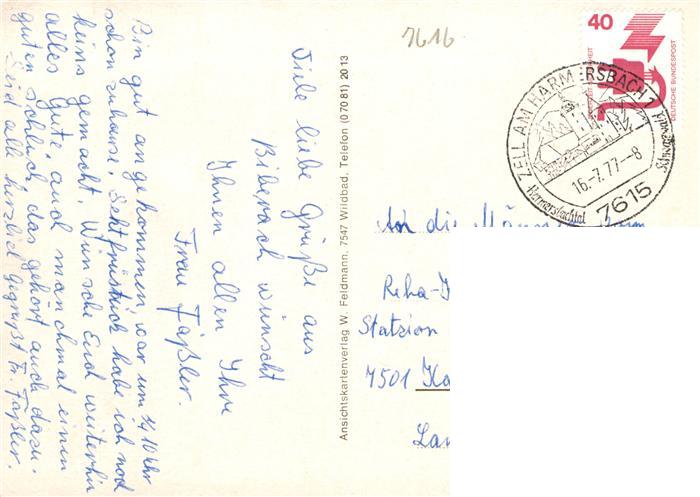 Viele liebe Grüße aus
Biberach wünscht
Ihnen allen Ihre
Frau Fäßler.
Bin gut angekommen war um 1/4 10 Uhr
schon zuhause, Sektfrüstück habe ich noch
keins gemacht. Wünsche Euch weiterhin
alles Gute, auch manchmal einen
guten schluck das gehört auch dazu.
Seid alle herzlich gegrüßt Fr. Fäßler.
Ansichtskartenverlag W. Feldmann, 7547 Wildbad, Telefon (0 70 81) 20 13
7616
40
DEUTSCHE BUNDESPOST
ZELL AM HARMERSBACH 1
16.-7.77--8
Harmersbachtal
7615
An die Männer
Reha-
Statzion
7501 Ka
Lan